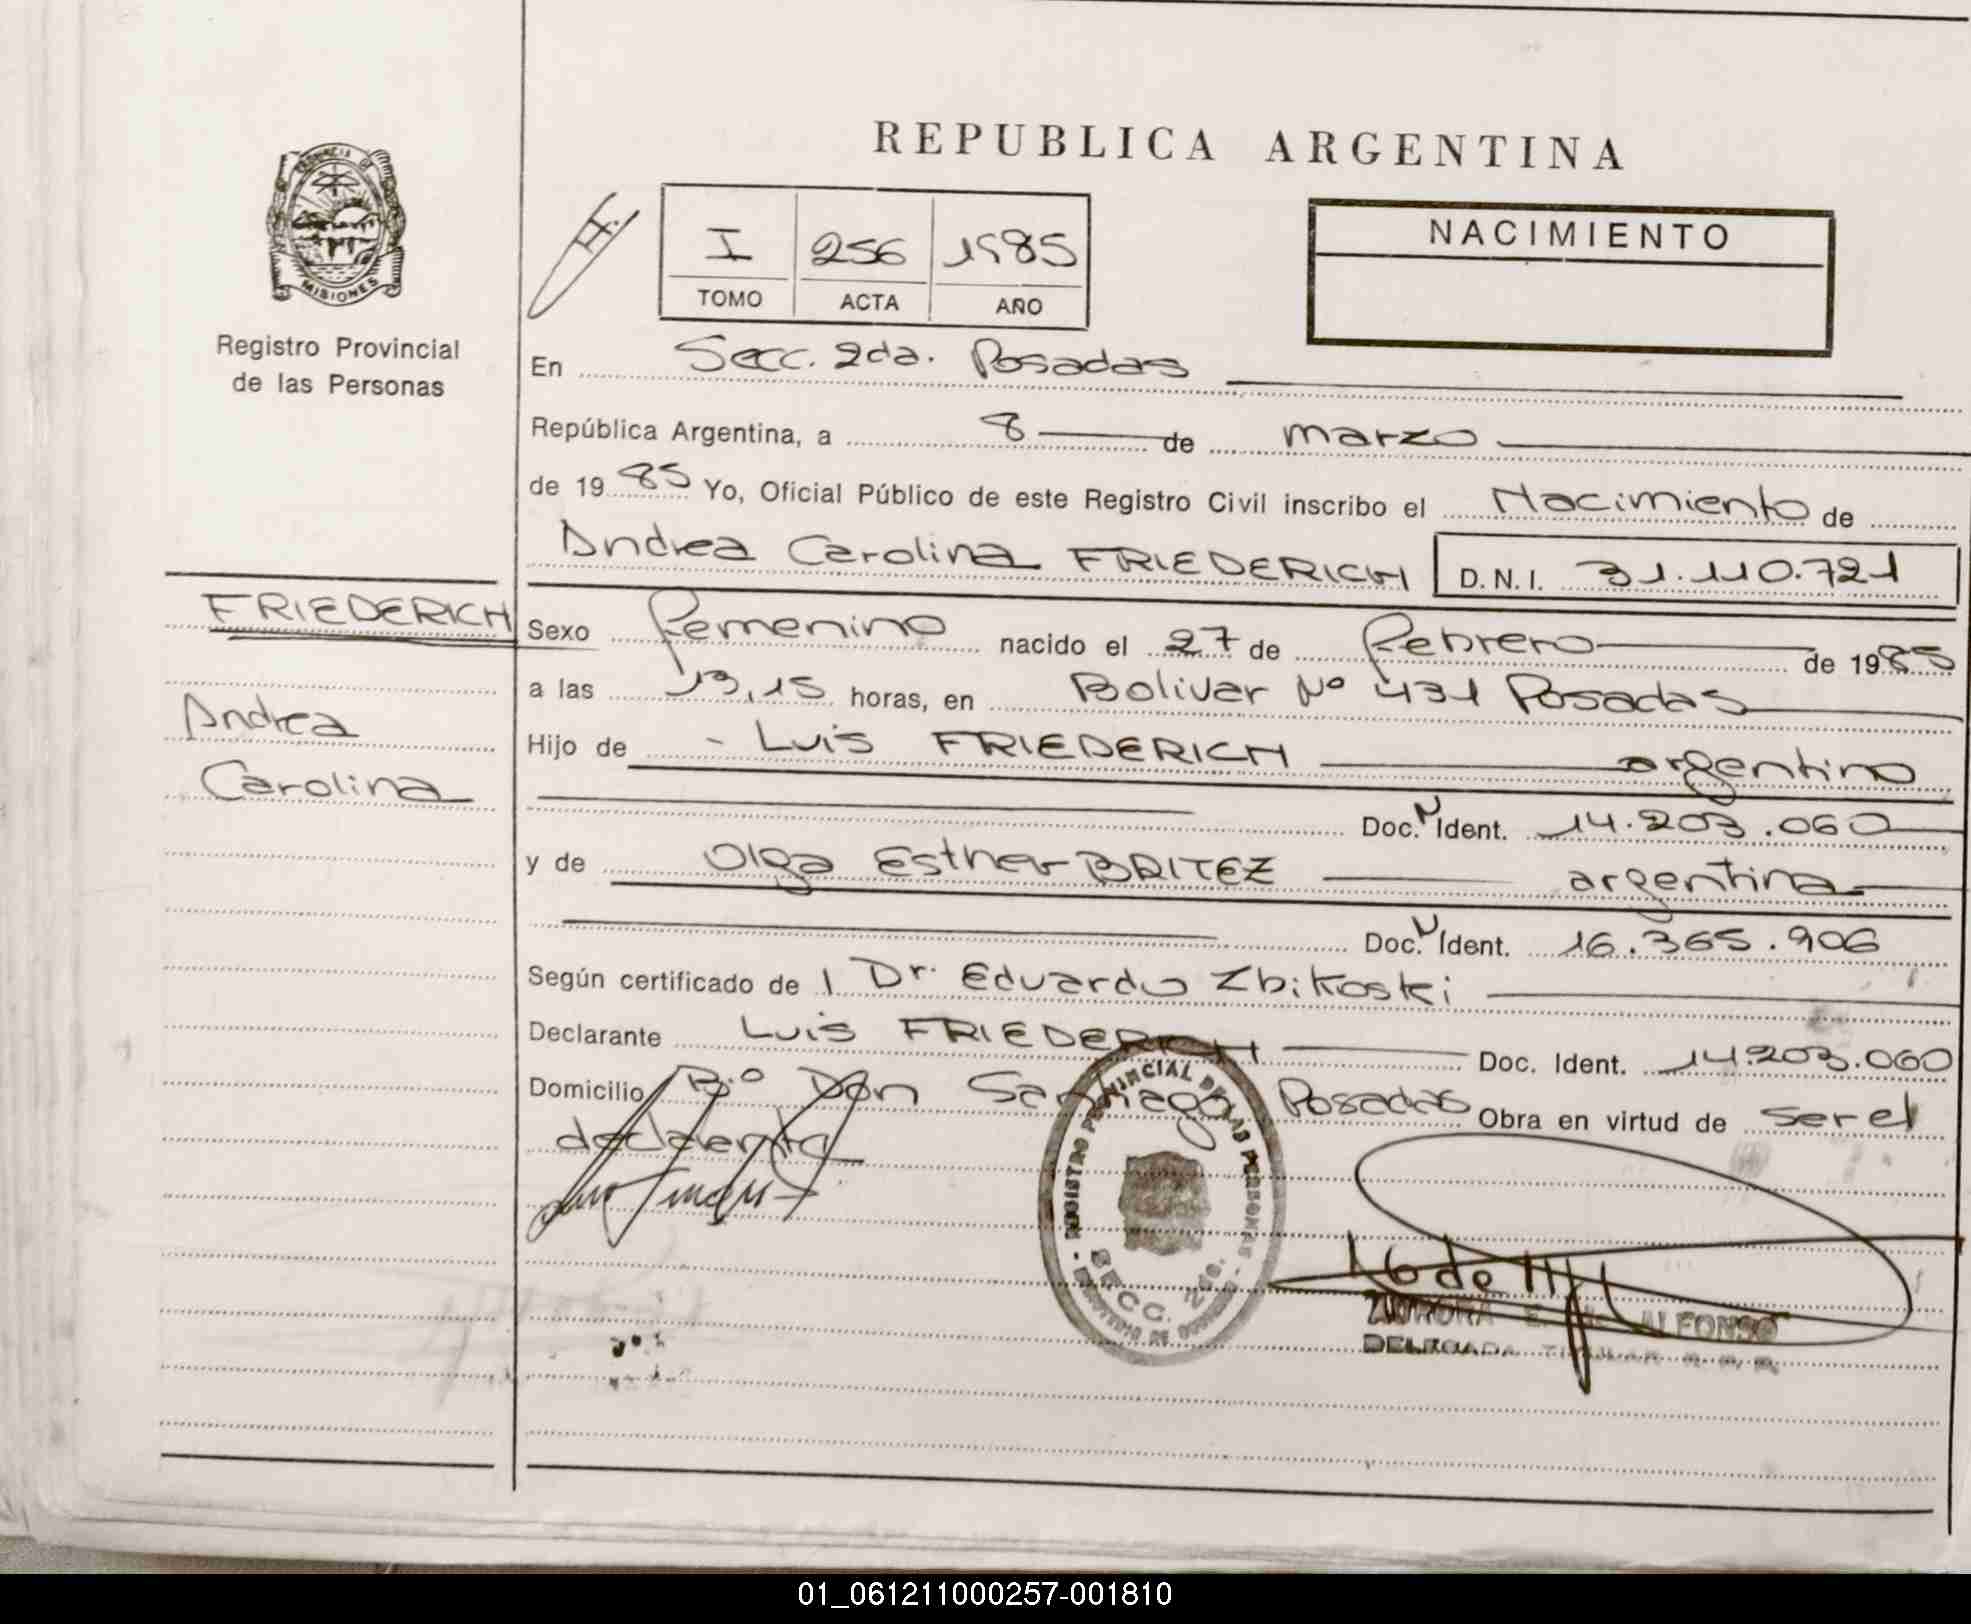 REPUBLICA ARGENTINA
PROVINCIA DE
MISIONES
Registro Provincial
de las Personas
H.
I 256 1985
TOMO ACTA AÑO
NACIMIENTO
En Secc. 2da. Posadas
República Argentina, a 8 de marzo
de 1985 Yo, Oficial Público de este Registro Civil inscribo el Nacimiento de
Andrea Carolina FRIEDERICH D.N.I. 31.110.721
FRIEDERICH
Andrea
Carolina
Sexo femenino nacido el 27 de febrero de 1985
a las 13,15 horas, en Bolivar Nº 431 Posadas
Hijo de - Luis FRIEDERICH argentino
Doc. N Ident. 14.203.060
y de Olga Esther BRITEZ argentina
Doc. N Ident. 16.365.906
Según certificado de l Dr. Eduardo Zbikoski
Declarante Luis FRIEDERICH Doc. Ident. 14.203.060
Domicilio Bº Don Santiago Posadas Obra en virtud de ser el
declarante
REGISTRO PROVINCIAL DE LAS PERSONAS
SECC.
E. de ALFONSO
DELEGADA TITULAR
01_061211000257-001810